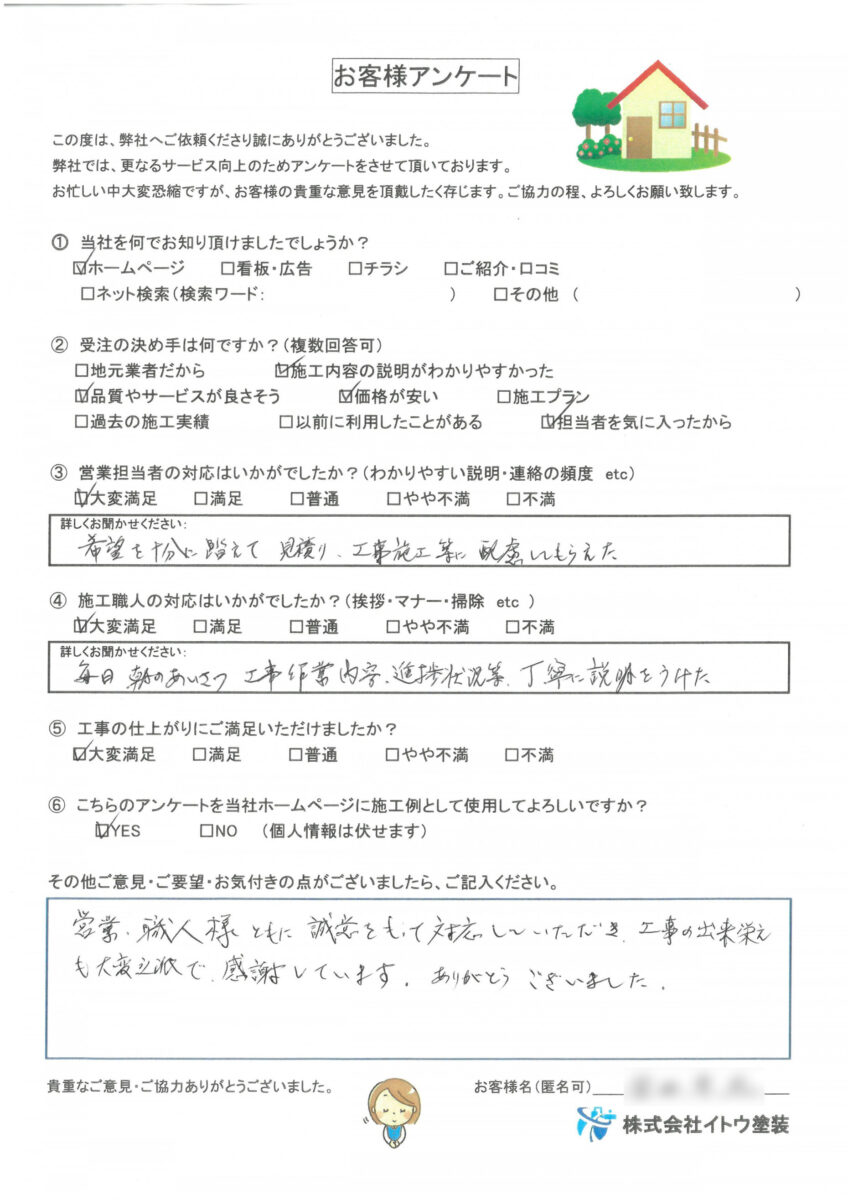 お客様アンケート
この度は、弊社へご依頼くださり誠にありがとうございました。
弊社では、更なるサービス向上のためアンケートをさせて頂いております。
お忙しい中大変恐縮ですが、お客様の貴重な意見を頂戴したく存じます。ご協力の程、よろしくお願い致します。
① 当社を何でお知り頂けましたでしょうか？
☑ホームページ □看板・広告 □チラシ □ご紹介・口コミ
□ネット検索（検索ワード： ） □その他 （ ）
② 受注の決め手は何ですか？（複数回答可）
□地元業者だから ☑施工内容の説明がわかりやすかった
☑品質やサービスが良さそう ☑価格が安い □施工プラン
□過去の施工実績 □以前に利用したことがある ☑担当者を気に入ったから
③ 営業担当者の対応はいかがでしたか？（わかりやすい説明・連絡の頻度 etc）
☑大変満足 □満足 □普通 □やや不満 □不満
詳しくお聞かせください：
希望を十分に踏えて 見積り、工事施工等に配慮してもらえた
④ 施工職人の対応はいかがでしたか？（挨拶・マナー・掃除 etc ）
☑大変満足 □満足 □普通 □やや不満 □不満
詳しくお聞かせください：
毎日 朝のあいさつ 工事作業内容、進捗状況等、丁寧に説明をうけた
⑤ 工事の仕上がりにご満足いただけましたか？
☑大変満足 □満足 □普通 □やや不満 □不満
⑥ こちらのアンケートを当社ホームページに施工例として使用してよろしいですか？
☑YES □NO （個人情報は伏せます）
その他ご意見・ご要望・お気付きの点がございましたら、ご記入ください。
営業、職人様ともに 誠意をもって対応していただき、工事の出来栄え
も大変立派で、感謝しています。ありがとうございました。
貴重なご意見・ご協力ありがとうございました。 お客様名（匿名可）
株式会社イトウ塗装